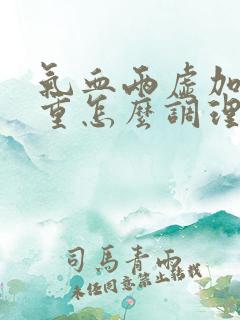 氣血兩虛加
重怎麼調理
司馬青雨
未经同意禁止转载